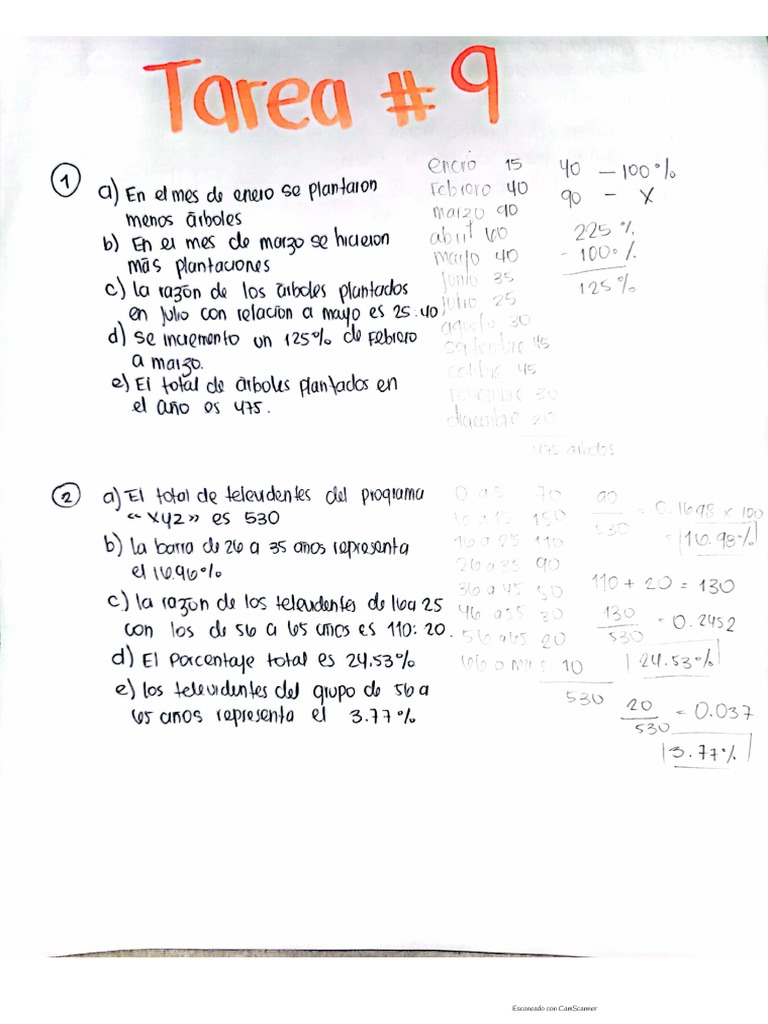 Tarea # 9
1
a) En el mes de enero se plantaron
menos árboles
b) En el mes de marzo se hicieron
más plantaciones
c) la razón de los árboles plantados
en julio con relacion a mayo es 25:40
d) se incremento un 125% de Febrero
a marzo.
e) El total de árboles plantados en
el año es 475.
enero 15
Febrero 40
marzo 90
abril 60
mayo 40
junio 35
julio 25
agosto 30
septiembre 45
octubre 45
noviembre 30
diciembre 20
475 arboles
40 — 100%
90 — X
225%
- 100%
125%
2
a) El total de televidentes del programa
"XYZ" es 530
b) la barra de 26 a 35 años representa
el 16.96%
c) la razón de los televidentes de 16 a 25
con los de 56 a 65 años es 110:20.
d) El porcentaje total es 24.53%
e) los televidentes del grupo de 56 a
65 años representa el 3.77%
0 a 5 70
6 a 15 150
16 a 25 110
26 a 35 90
36 a 45 50
46 a 55 30
56 a 65 20
66 o mas 10
530
90
530
= 0.1698 x 100
= 16.98%
110 + 20 = 130
130
530
= 0.2452
24.53%
20
530
= 0.037
3.77%
Escaneado con CamScanner